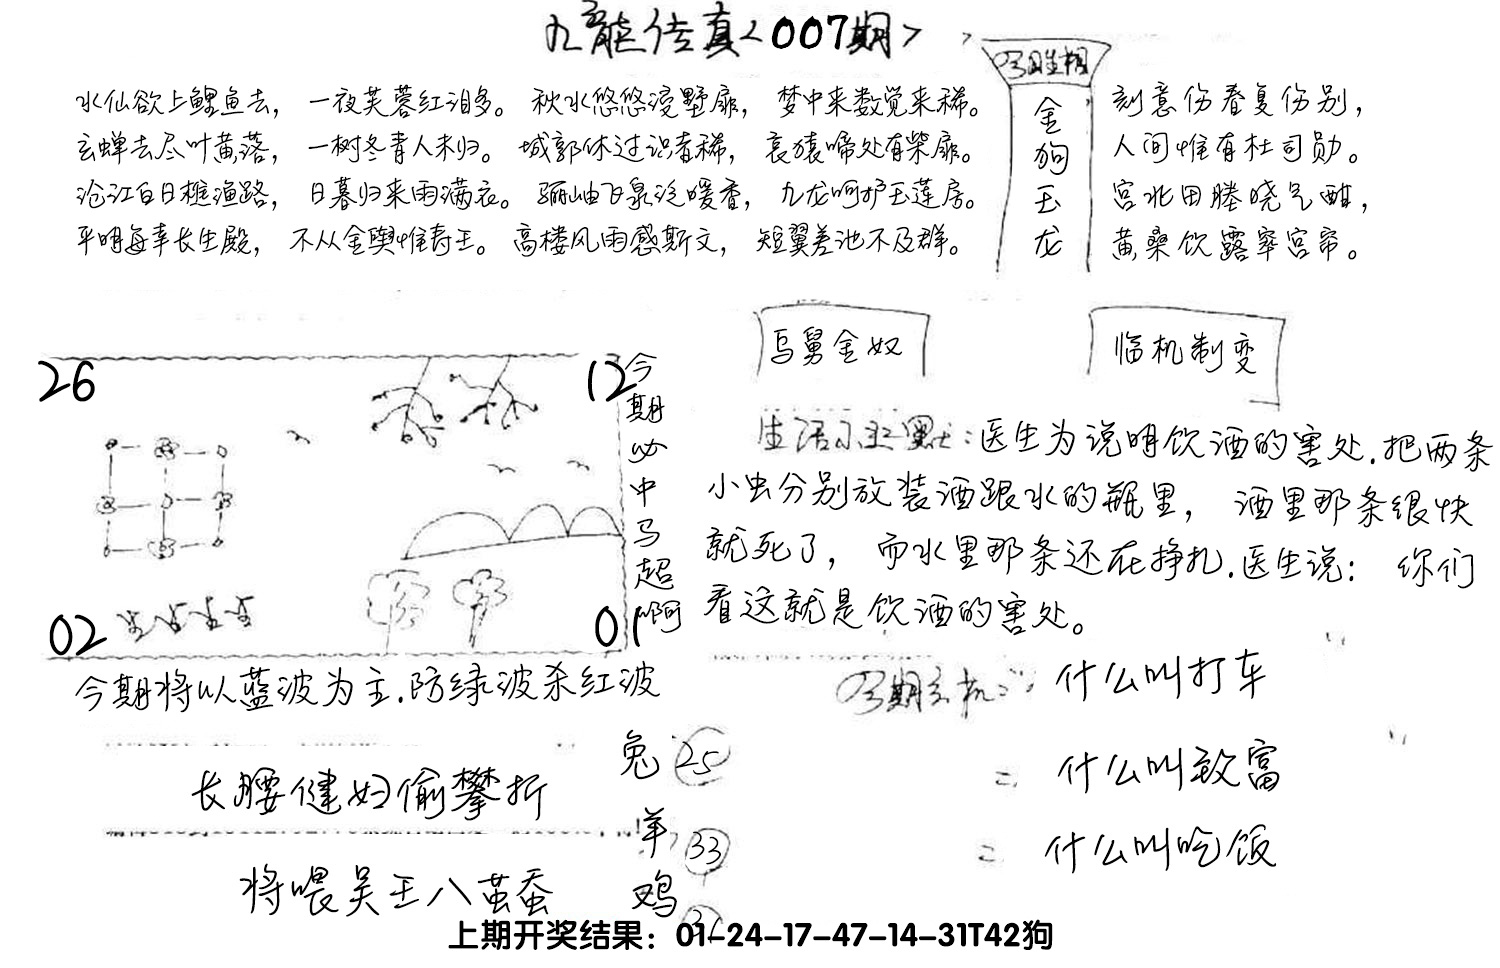 九龙传真<007期>
水仙欲上鲤鱼去，一夜芙蓉红泪多。秋水悠悠浸野扉，梦中来数觉来稀。
玄蝉去尽叶黄落，一树冬青人未归。城郭休过识者稀，哀猿啼处有柴扉。
沧江白日樵渔路，日暮归来雨满衣。骊岫飞泉泛暖香，九龙呵护玉莲房。
平明每幸长生殿，不从金舆惟寿王。高楼风雨感斯文，短翼差池不及群。
今期生相
金狗玉龙
刻意伤春复伤别，
人间惟有杜司勋。
宫北田塍晓气酣，
黄桑饮露窣宫帘。
26
12
02
01
今期必中马超啊
乌舅金奴
临机制变
生活小幽默：医生为说明饮酒的害处.把两条
小虫分别放装酒跟水的瓶里，酒里那条很快
就死了，而水里那条还在挣扎.医生说：你们
看这就是饮酒的害处。
今期将以蓝波为主.防绿波杀红波
今期玄机：什么叫打车
= 什么叫致富
= 什么叫吃饭
长腰健妇偷攀折
将喂吴王八茧蚕
兔 25
羊 33
鸡
上期开奖结果：01-24-17-47-14-31T42狗